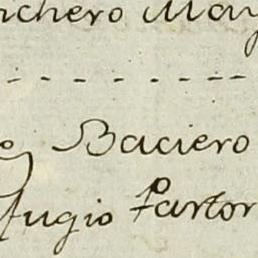 nchero May
o Baciero
fugio Partor